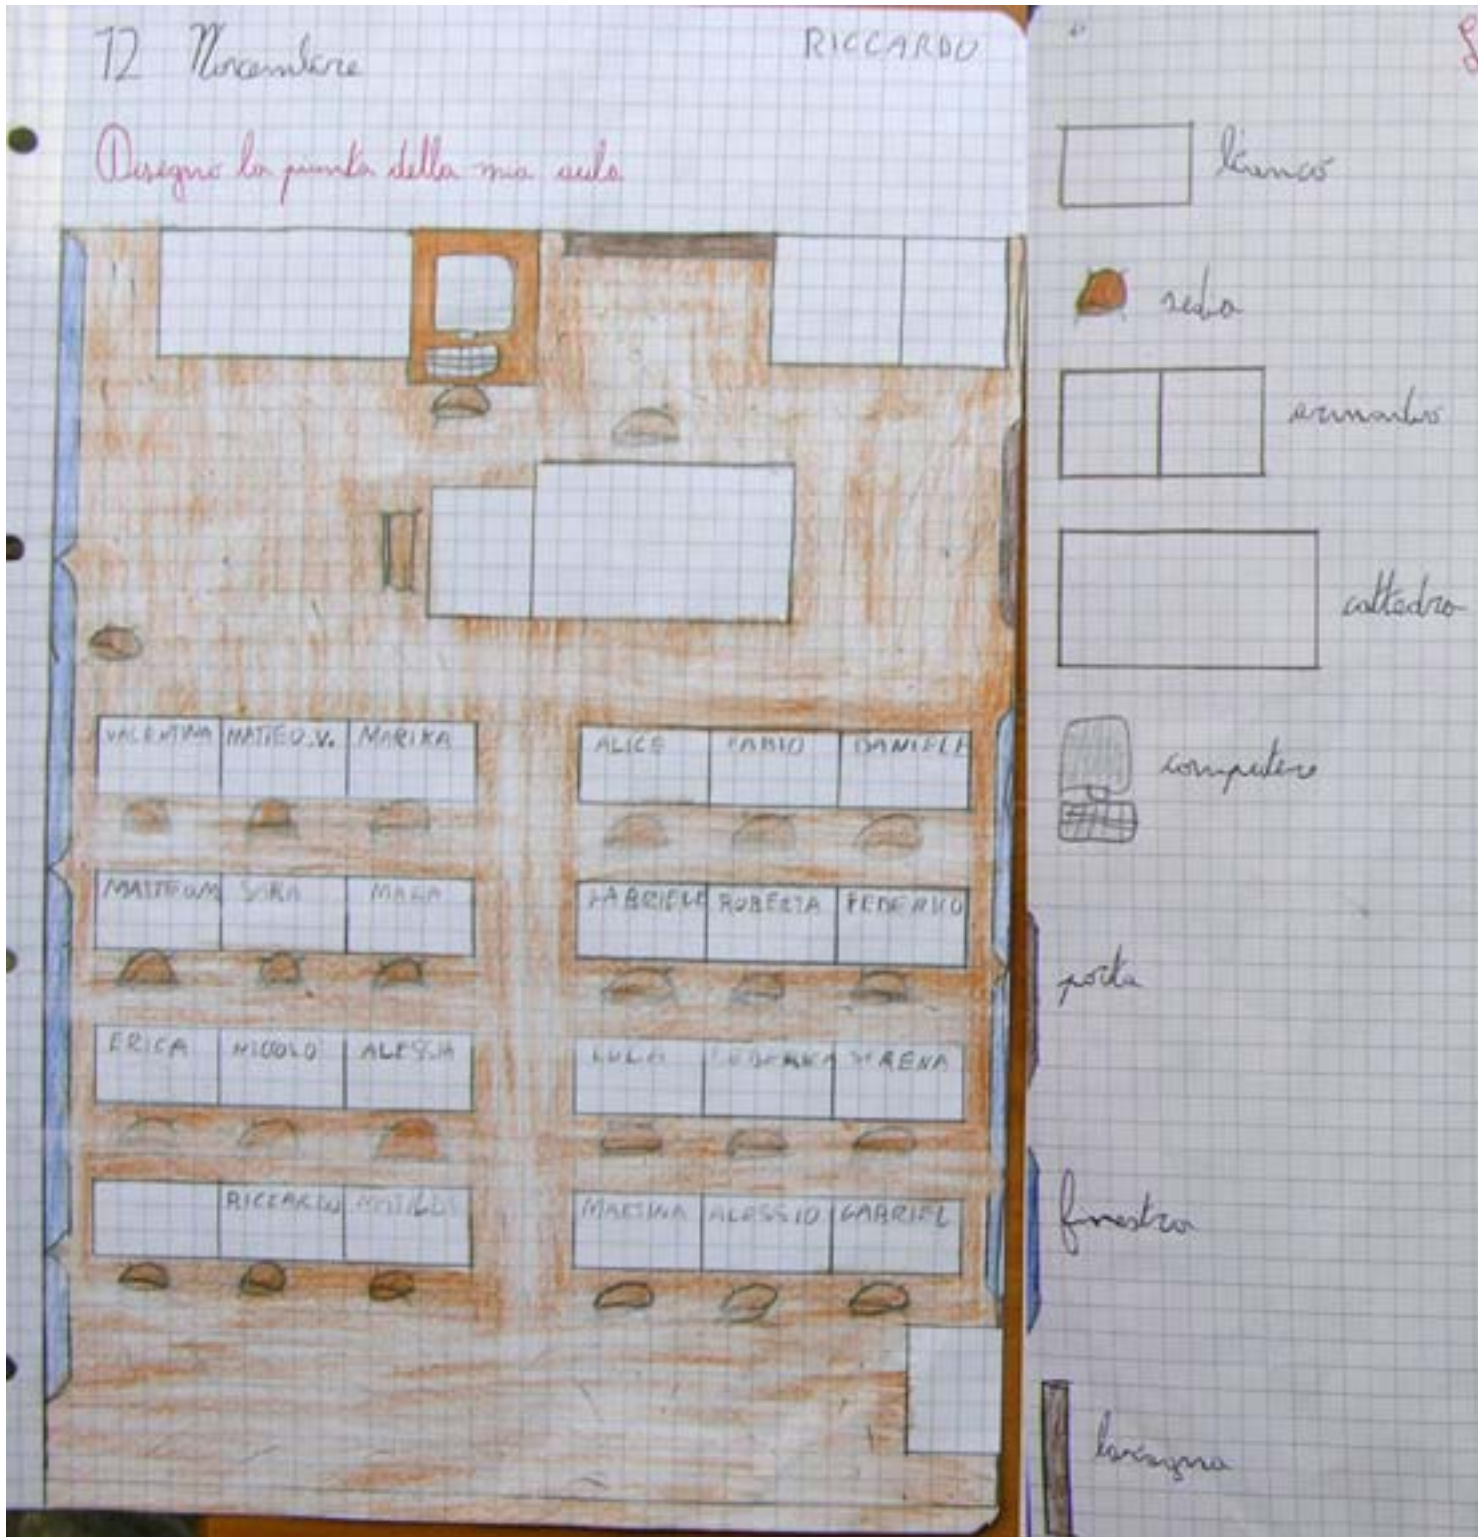 12 Novembre RICCARDO
Disegno la pianta della mia aula
VALENTINA MATTEO.V. MARIKA
ALICE FABIO DANIELE
MATTEOM SARA MARA
GABRIELE ROBERTA FEDERICO
ERICA NICOLO ALESSIA
SERENA
RICCARDO MATILDE
MARTINA ALESSIO GABRIEL
banco
sedia
armadio
cattedra
computer
porta
finestra
lavagna